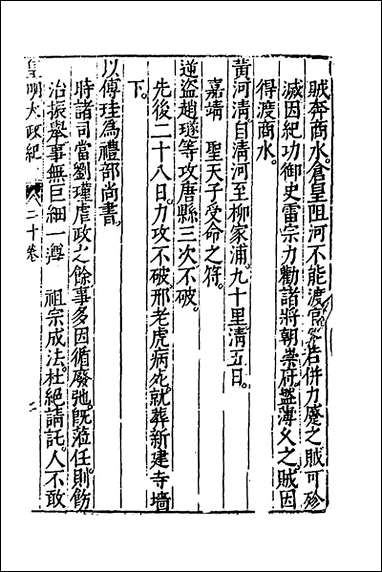 賊奔商水。倉皇阻河不能渡。官兵若併力蹙之賊可殄
滅因紀功御史雷宗力勸諸將朝崇府。盤薄久之。賊因
得渡商水。
黃河清自清河至柳家浦。九十里清五日。
嘉靖　聖天子受命之符。
逆盜趙鐩等攻唐縣三次不破。
先後二十八日。力攻不破。邢老虎病死。就葬新建寺墻
下。
以傅珪爲禮部尚書。
時諸司當劉瑾虐政之餘事多因循廢弛。旣蒞任則飭
治振舉事無巨細一遵　祖宗成法。杜絶請託。人不敢
皇明大政紀　二十卷　二